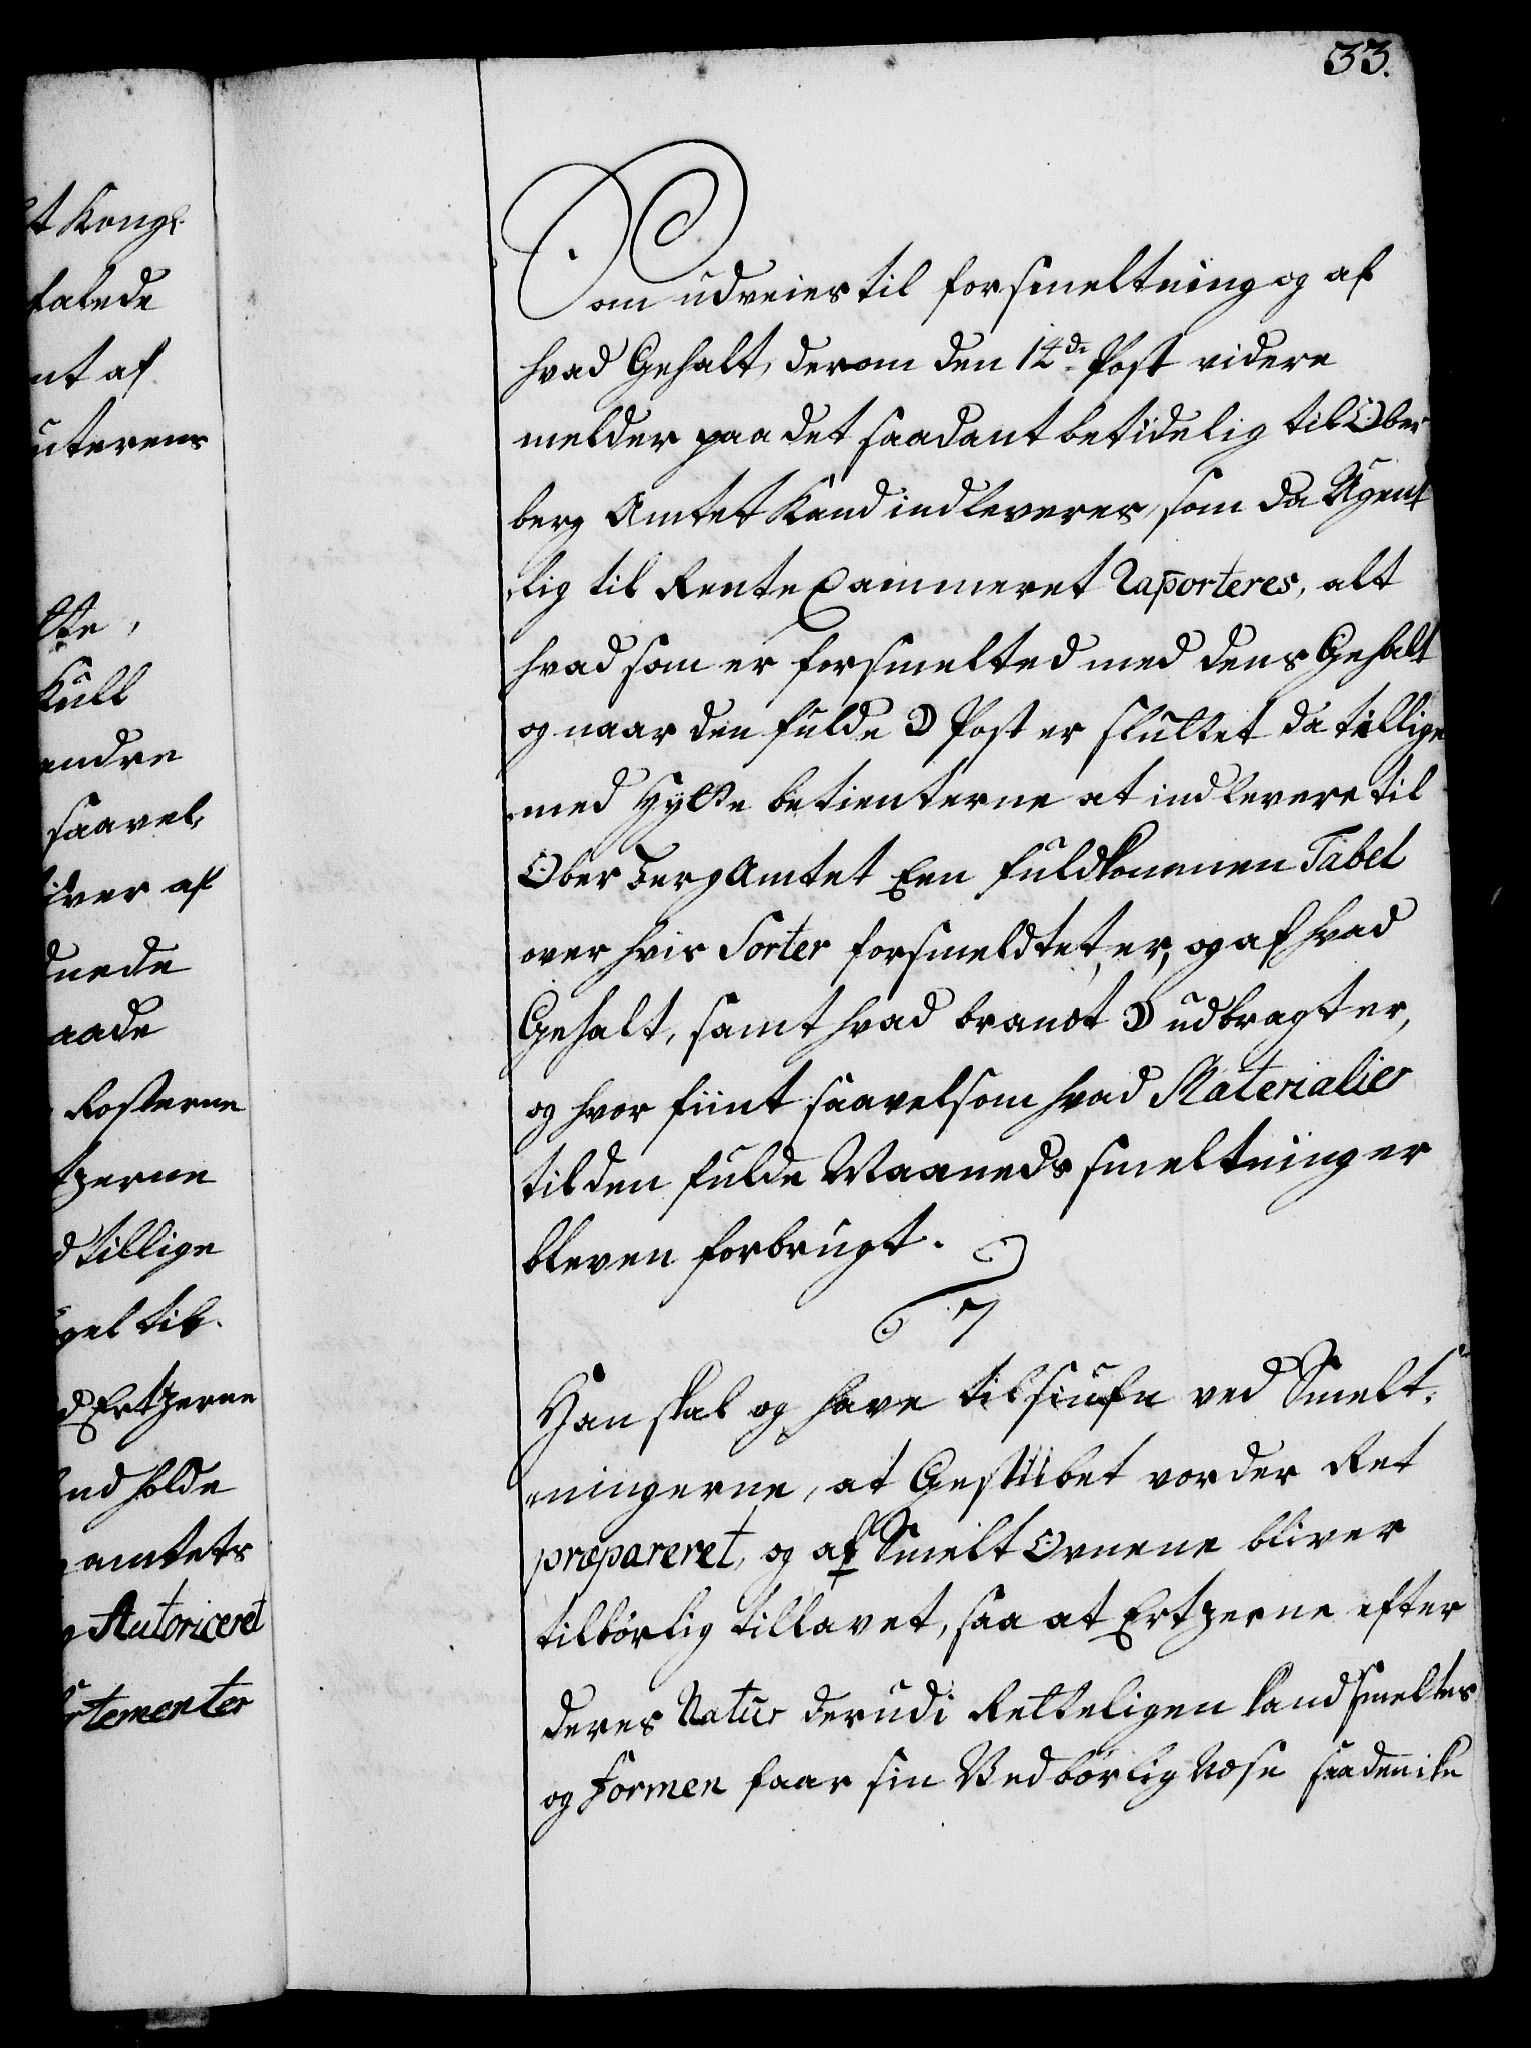 33.
t Kongl.
falede
nt af
uterens
tte,
Kull
endre
saavel,
lver af
dnede
aade
Rosterne
tzerne
d tillige
gel til.
d Ertzerne
nd holde
amtets
Autoriceret
rtementer
Som udveies til forsmeltning og af
hvad Gehalt, derom den 14de Post videre
melder paa det saadant betidelig til Ober
berg Amtet Kand indleveres, som da Ugent
lig til Rente Cammeret Raporteres, alt
hvad som er forsmelted med dens Gehalt
og naar den fulde ☽ Post er sluttet da tillige
med Hytte betienterne at indlevere til
Ober berg Amtet Een fuldkommen Tabel
over hvis Sorter forsmeldtet, er, og af hvad
Gehalt, samt hvad brandt ☽ udbragt er,
og hvor fiint saavelsom hvad Materialier
til den fulde Maaneds smeltning er
bleven forbrugt.
7
Han skal og have tilsiufn ved Smelt,
ningerne, at Gestübet vorder Ret
præpareret, og af Smelt Ovnene bliver
tilbørlig tillavet, saa at Ertzerne efter
deres Natur derudi Retteligen kand smeltes
og Formen faar sin Vedbørlig Næse